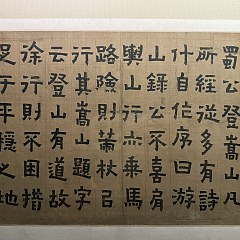 蜀公登嵩山凡
所經從多有詩
什自作序曰游
山錄公不喜肩
輿山行亦乘馬
路險則策杖㠯
行其嵩山題字
云登山有道故
徐行則不困措
足于平穩之地